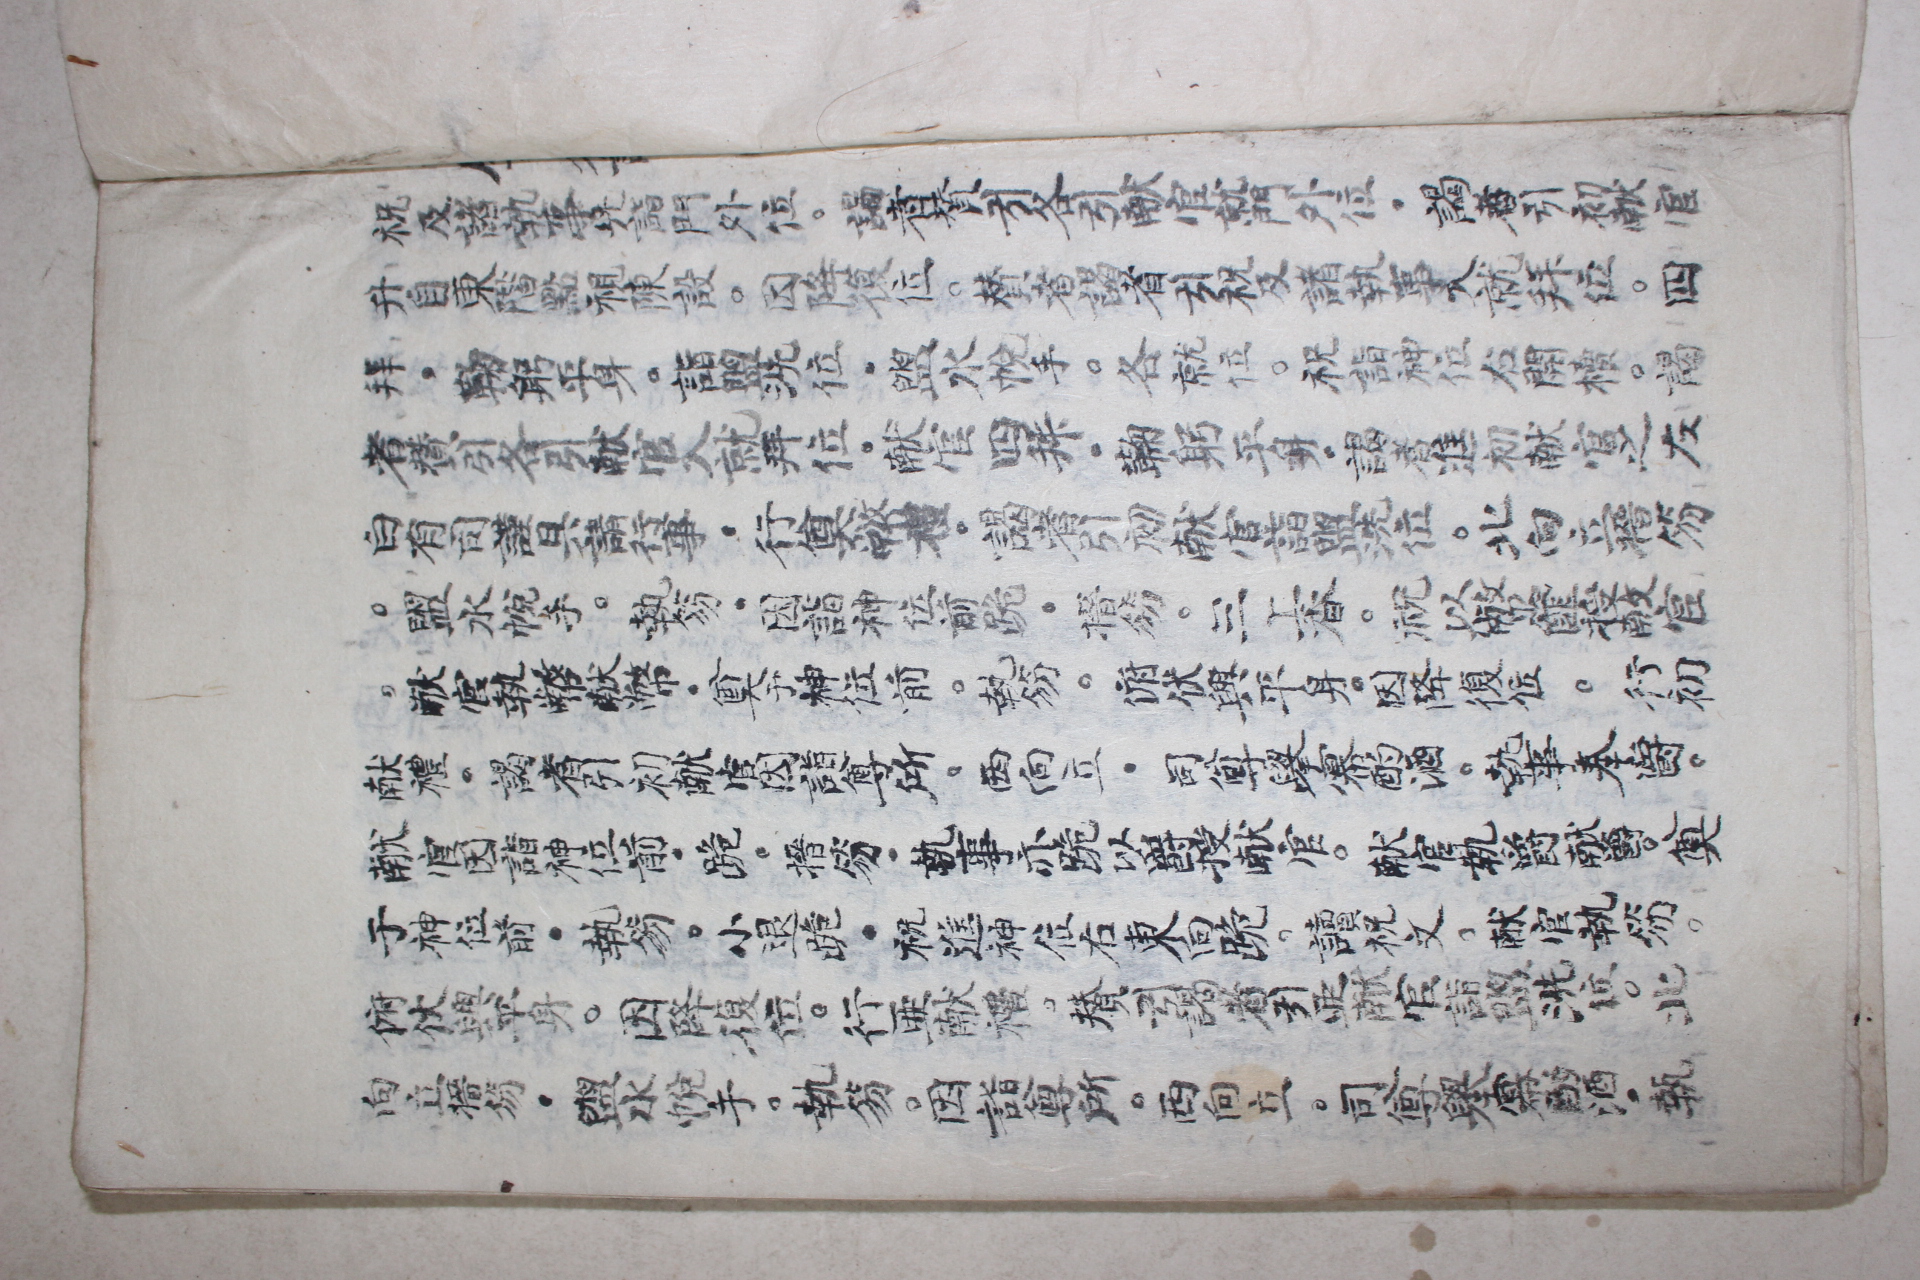 祝及諸執事先詣門外位。謁者贊引各引献官就門外位。謁者引初献官
升自東階點視陳設。因降復位。贊者謁者引祝及諸執事入就拜位。四
拜。鞠躬平身。詣盥洗位。盥水帨手。各就位。祝詣神位右開櫝。謁
者贊引各引献官入就拜位。献官四拜。鞠躬平身。謁者進初献官之左
白有司謹具請行事。行奠幣禮。謁者引初献官詣盥洗位。北向立搢笏
。盥水帨手。執笏。因詣神位前跪。搢笏。三上香。祝以幣篚授献官
。献官執幣献幣。奠于神位前。執笏。俯伏興平身。因降復位。行初
献禮。謁者引初献官因詣尊所。西向立。司尊擧冪酌酒。執事奉爵。
献官因詣神位前。跪。搢笏。執事亦跪以爵授献官。献官執爵献爵。奠
于神位前。執笏。小退跪。祝進神位右東向跪。讀祝文。献官執笏。
俯伏興平身。因降復位。行亜献禮。贊引謁者引亜献官詣盥洗位。北
向立搢笏。盥水帨手。執笏。因詣尊所。西向立。司尊擧冪酌酒。執